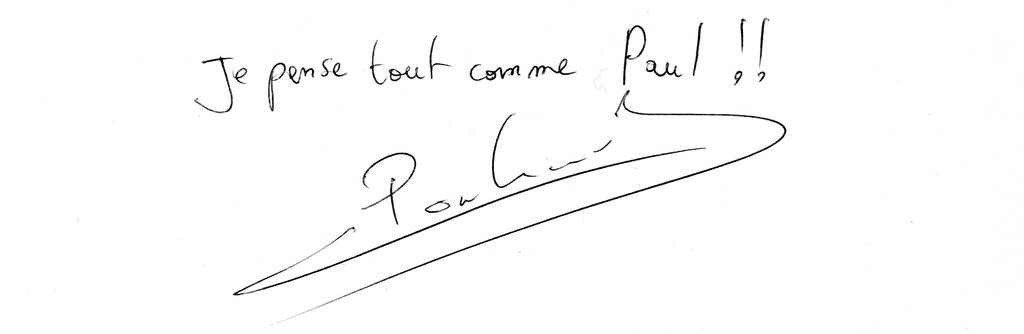 Je pense tout comme Paul !!